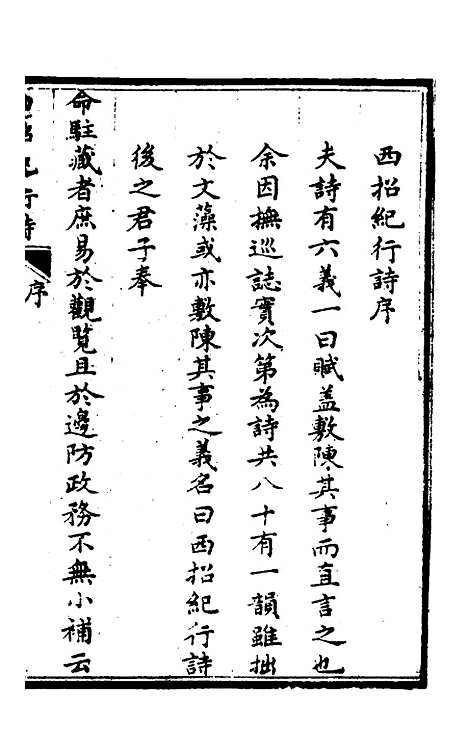 西招紀行詩序
夫詩有六義一曰賦盖敷陳其事而直言之也
余因撫巡誌實次第為詩共八十有一韻雖拙
於文藻或亦敷陳其事之義名曰西招紀行詩
後之君子奉
命駐藏者庶易於觀覽且於邊防政務不無小補云
西招紀行詩
序